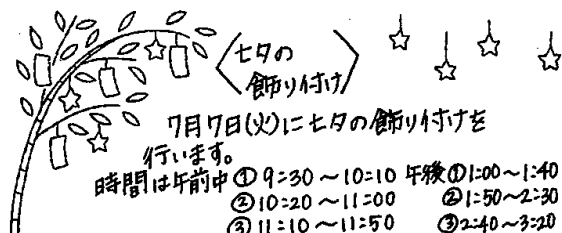 七夕の
飾り付け
7月7日(火)に七夕の飾り付けを
行います。
時間は午前中 ① 9:30~10:10 午後 ① 1:00~1:40
② 10:20~11:00 ② 1:50~2:30
③ 11:10~11:50 ③ 2:40~3:20